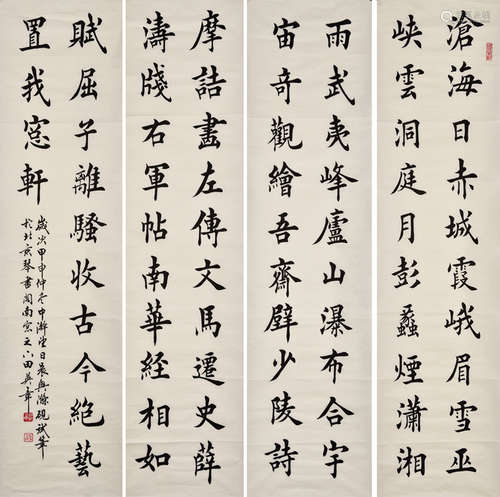 滄海日赤城霞峨眉雪巫
峽雲洞庭月彭蠡煙瀟湘
雨武夷峰廬山瀑布合宇
宙奇觀繪吾齋壁少陵詩
摩詰畫左傳文馬遷史薛
濤牋右軍帖南華経相如
賦屈子離騷收古今絕藝
置我窓軒
歲次甲申仲冬中澣望日晨興滌硯試筆
於北京琴書閣南窓之下田英章